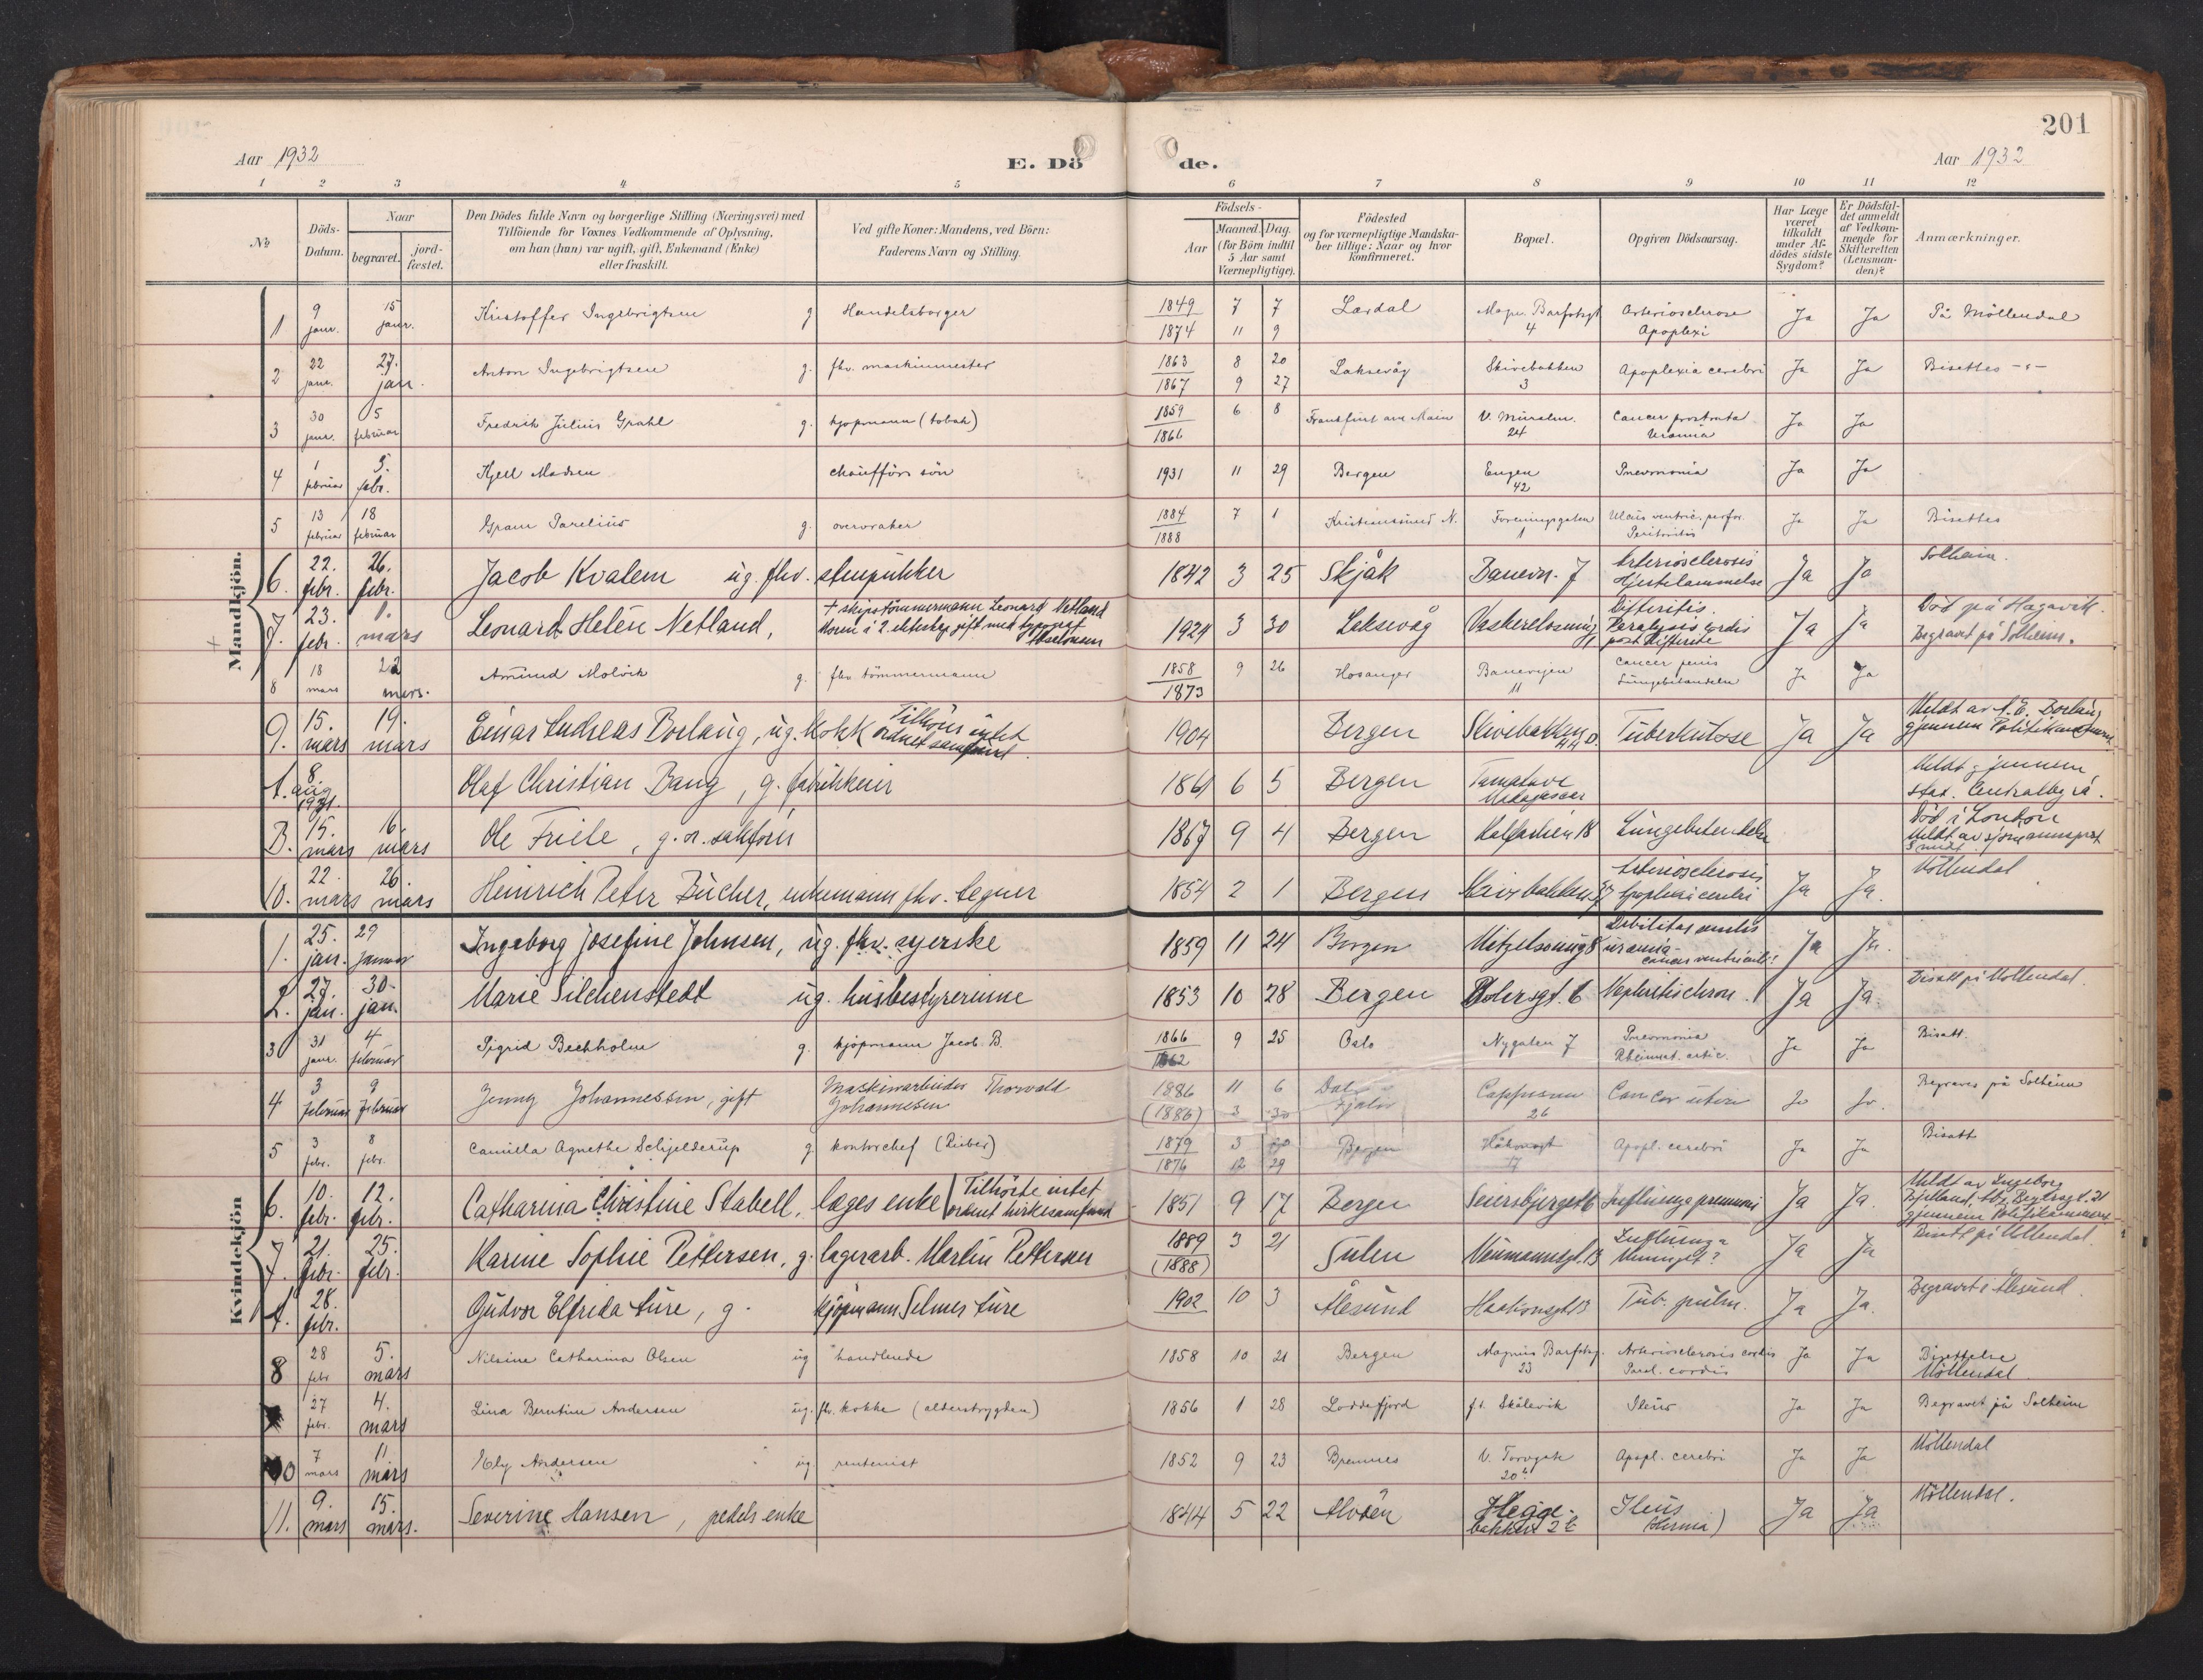 201
Aar 1932
E. Dö
de.
Aar 1932
1 2 3 4 5 6 7 8 9 10 11 12
№
Döds-Datum.
Naar
begravet.
jord-fæstet.
Den Dödes fulde Navn og borgerlige Stilling (Næringsvei) med
Tilföiende for Voxnes Vedkommende af Oplysning,
om han (hun) var ugift, gift, Enkemand (Enke)
eller fraskilt.
Ved gifte Koner: Mandens, ved Börn:
Faderens Navn og Stilling.
Födsels-
Aar
Maaned. Dag.
(for Börn indtil
5 Aar samt
Værnepligtige).
Födested
og for værnepligtige Mandska-
ber tillige: Naar og hvor
konfirmeret.
Bopæl.
Opgiven Dödsaarsag.
Har Læge
været
tilkaldt
under Af-
dödes sidste
Sygdom?
Er Dödsfal-
det anmeldt
af Vedkom-
mende for
Skifteretten
(Lensman-
den)?
Anmærkninger.
Mandkjön.
1 9 janr. 15 janr. Kristoffer Ingebrigtsen g Handelsborger 1849 7 7 1874 11 9 Lærdal 4 Arteriosclerose Apoplexi Ja Ja På Möllendal
2 22 janr. 27. jan. Anton Ingebrigtsen g. fhv. maskinmester 1863 8 20 1867 9 27 Laksevåg Skivebakken 3 Apoplexia cerebri Ja Ja Bisettes
3 30 janr. 5 februar Fredrik Julius Grahl g. kjøpmann (tobak) 1859 6 8 1866 Frankfurt am Main V. Muralm. 24 Cancer prostrata Uræmia Ja Ja
4 1 februar 5. febr. Kjell Madsen chaufförs sön 1931 11 29 Bergen Engen 42 Pneumonia Ja Ja
5 13 februar 18 februar Gram Parelius g. overvraker 1884 7 1 1888 Kristiansund N. Foreningsgaten 1 Ulcus ventric. perfor. Peritonitis Ja Ja Bisettes
6. 22. febr. 26. febr. Jacob Kvalem ug. fhv. stenpukker 1842 3 25 Skjåk Banevn. 7 Arteriosclerosis Hjertelammelse Ja Ja Solheim.
7. 23. febr. 1. mars Leonard Helén Netland, † skipstömmermann Leonard Netland Moren i 2. ekteskap gift med typograf 1924 3 30 Laksevåg Difteritis. Paralysis cordis post difterite Ja Ja Död på Hagavik. Begravet på Solheim.
8 18 mars 22 mars. Amund Molvik g. fhv. tömmermann 1858 9 26 1873 Hosanger Baneveien 11 Cancer penis Lungebetendelse Ja Ja
9. 15. mars 19. mars Einar Andreas Borlaug, ug. kokk Tilhörer intet ordnet samfund. 1904 Bergen Skivebakken Tuberkulose Ja Ja Meldt av gjennem Politikammeret
A. 8. aug. 1931. Olaf Christian Bang, g. fabrikkeier 1861 6 5 Bergen Tamatave Madagascar Meldt gjennem stat. Centralbyrå.
B. 15. mars 16. mars Ole Friele, g. o. sakförer 1867 9 4 Bergen Kalfarlien 18 Lungebetendelse Död i London Meldt av sjømannsprest
10. 22. mars 26. mars Heinrich Peter Bücher, enkemann fhv. tegner 1854 2 1 Bergen Skivebakken 37 Arteriosclerosis Apoplexia cerebri Ja Ja. Möllendal
Kvindekjön
1. 25. jan. 29 januar Ingeborg Josefine Johnsen, ug. fhv. syerske 1859 11 24 Bergen Debilitas senilis uræmia cancer ventriculi? Ja Ja.
2. 27. jan. 30. jan. Marie Silchenstedt ug. husbestyrerinne 1853 10 28 Bergen Nephritis chron. Ja Ja. Bisatt på Möllendal.
3 31 janr. 4 februar Sigrid Bechholm g. kjøpmann Jacob B. 1866 9 25 1862 Oslo Nygaten 7 Pneumonia Rheumat. artic. Ja Ja Bisatt.
4 3 februar 9 februar Jenny Johannessen, gift Maskinarbeider Thorvald Johannesen 1886 11 6 (1886) 3 30 Dale Fjaler 26 Cancer uteri Ja Ja. Begraves på Solheim
5 3 febr. 8 febr. Camilla Agnethe Schjelderup g kontorchef (Lieber) 1879 3 1876 12 29 Bergen Håkonsgt 17 Apopl. cerebri Ja Ja Bisatt
6. 10. febr. 12. febr. Catharina Christine Stabell, læges enke Tilhörte intet ordnet kirkesamfund 1851 9 17 Bergen Seiersbjerget 6 Influenza pneumoni Ja Ja. Meldt av Ingeborg gjennem Politikammeret
7. 21. febr. 25. febr. Karine Sophie Pettersen, g. lagerarb. Martin Pettersen 1889 3 21 (1888) Sulen Neumannsgt. 13 Influenza Meningit? Ja Ja Bisatt på Möllendal.
A. 28. febr. Gudve Elfrida Aure, g. kjøpmann Selmer Aure 1902 10 3 Ålesund Haakonsgt 13 Tub. pulm. Ja Ja. Begravet i Ålesund.
8 28 febr 5. mars Nilsine Catharina Olsen ug handlende 1858 10 21 Bergen Magnus Barfotsg. 23 Arteriosclerosis cordis Paral. cordis Ja Ja Bisettelse Möllendal.
27 febr. 4. mars Lina Berntine Andersen ug. fhv. kokke (alderstrygden) 1856 1 28 Loddefjord f.t. Skålevik Ileus Ja Ja Begravet på Solheim
10 7 mars 11 mars Andersen ug rentenist 1852 9 23 Bremnes V. Torvgate 20 Apopl. cerebri Ja Ja Möllendal
11. 9. mars 15. mars. Severine Hansen, pedels enke 1844 5 22 Alvöen Hegge-bakken 2 Ileus (Hernia) Ja Ja Möllendal.